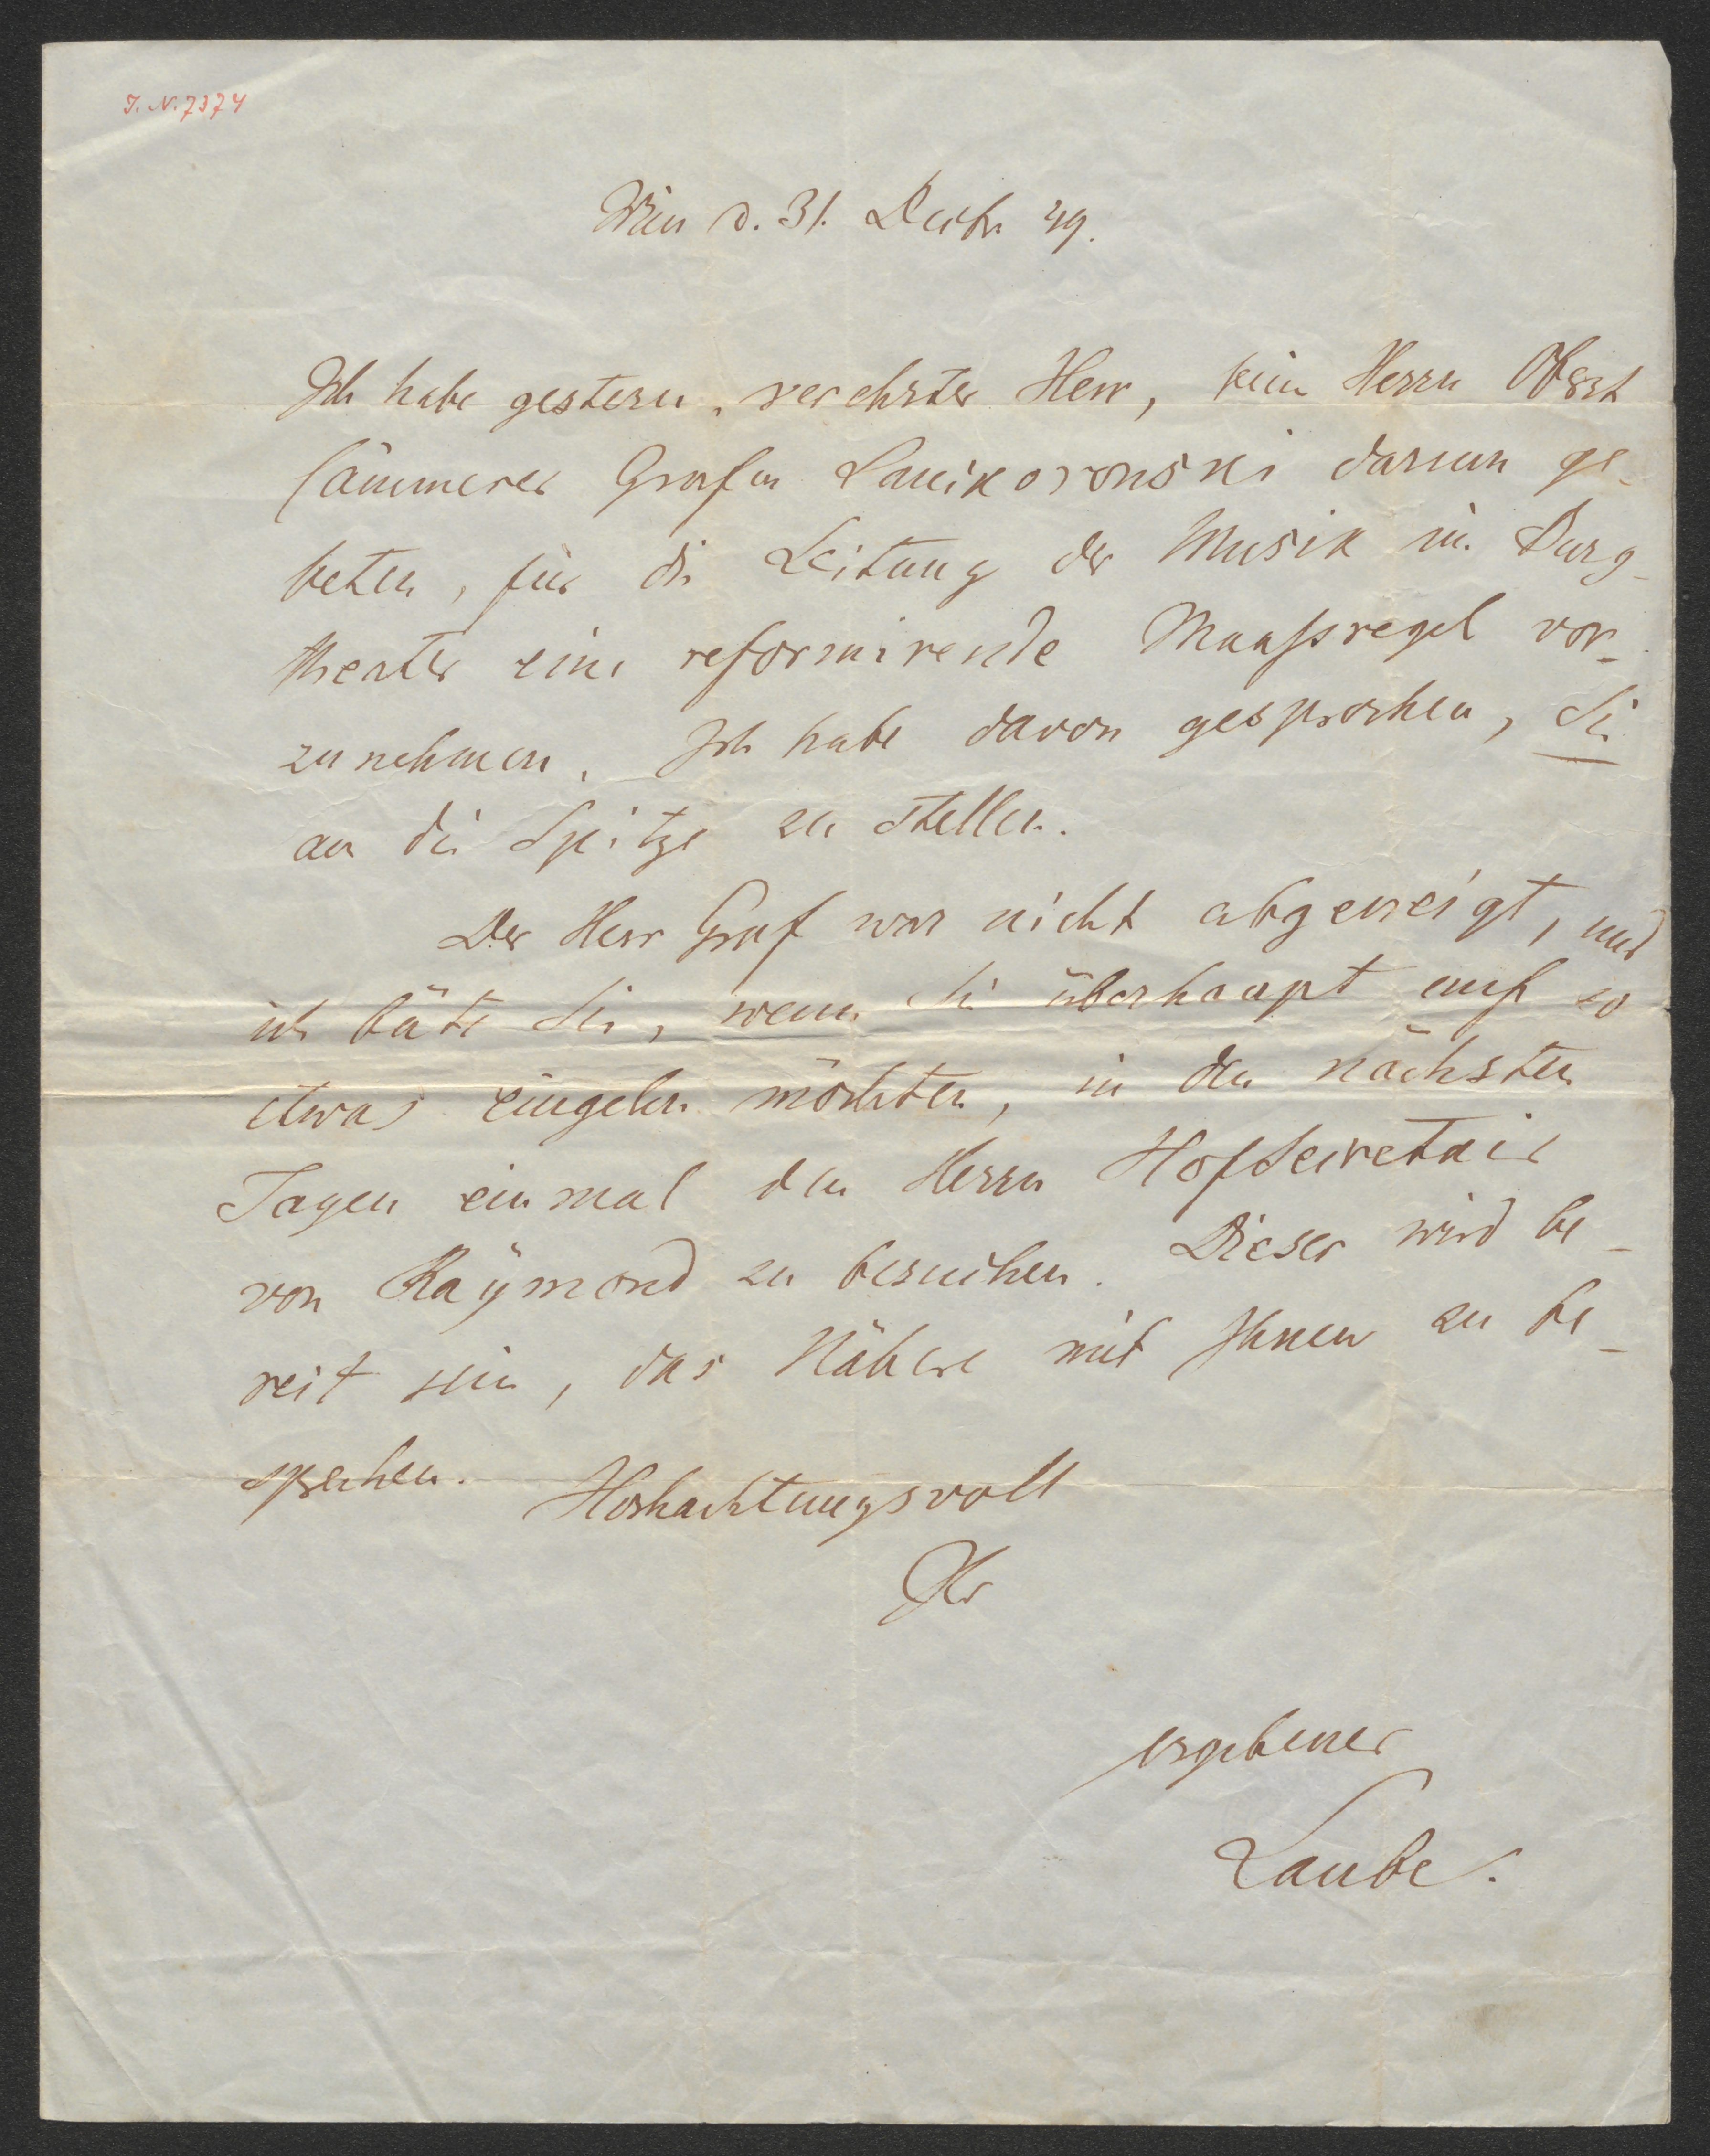 J. N. 7374
Wien d. 31. Decbr 49.
Ich habe gestern, verehrter Herr, beim Herrn Oberst
Cämmerer Grafen Lanckoronski darum ge-
beten, für die Leitung der Musik im Burg-
theater eine reformirende Maaßregel vor-
zunehmen. Ich habe davon gesprochen, Sie
an die Spitze zu stellen.
Der Herr Graf war nicht abgeneigt, und
ich bäte Sie, wenn Sie überhaupt auf so
etwas eingehen möchten, in den nächsten
Tagen einmal den Herrn Hofsecretair
von Raÿmond zu besuchen. Dieser wird be-
reit sein, das Nähere mit Ihnen zu be-
sprechen.
Hochachtungsvoll
Ihr
ergebener
Laube.